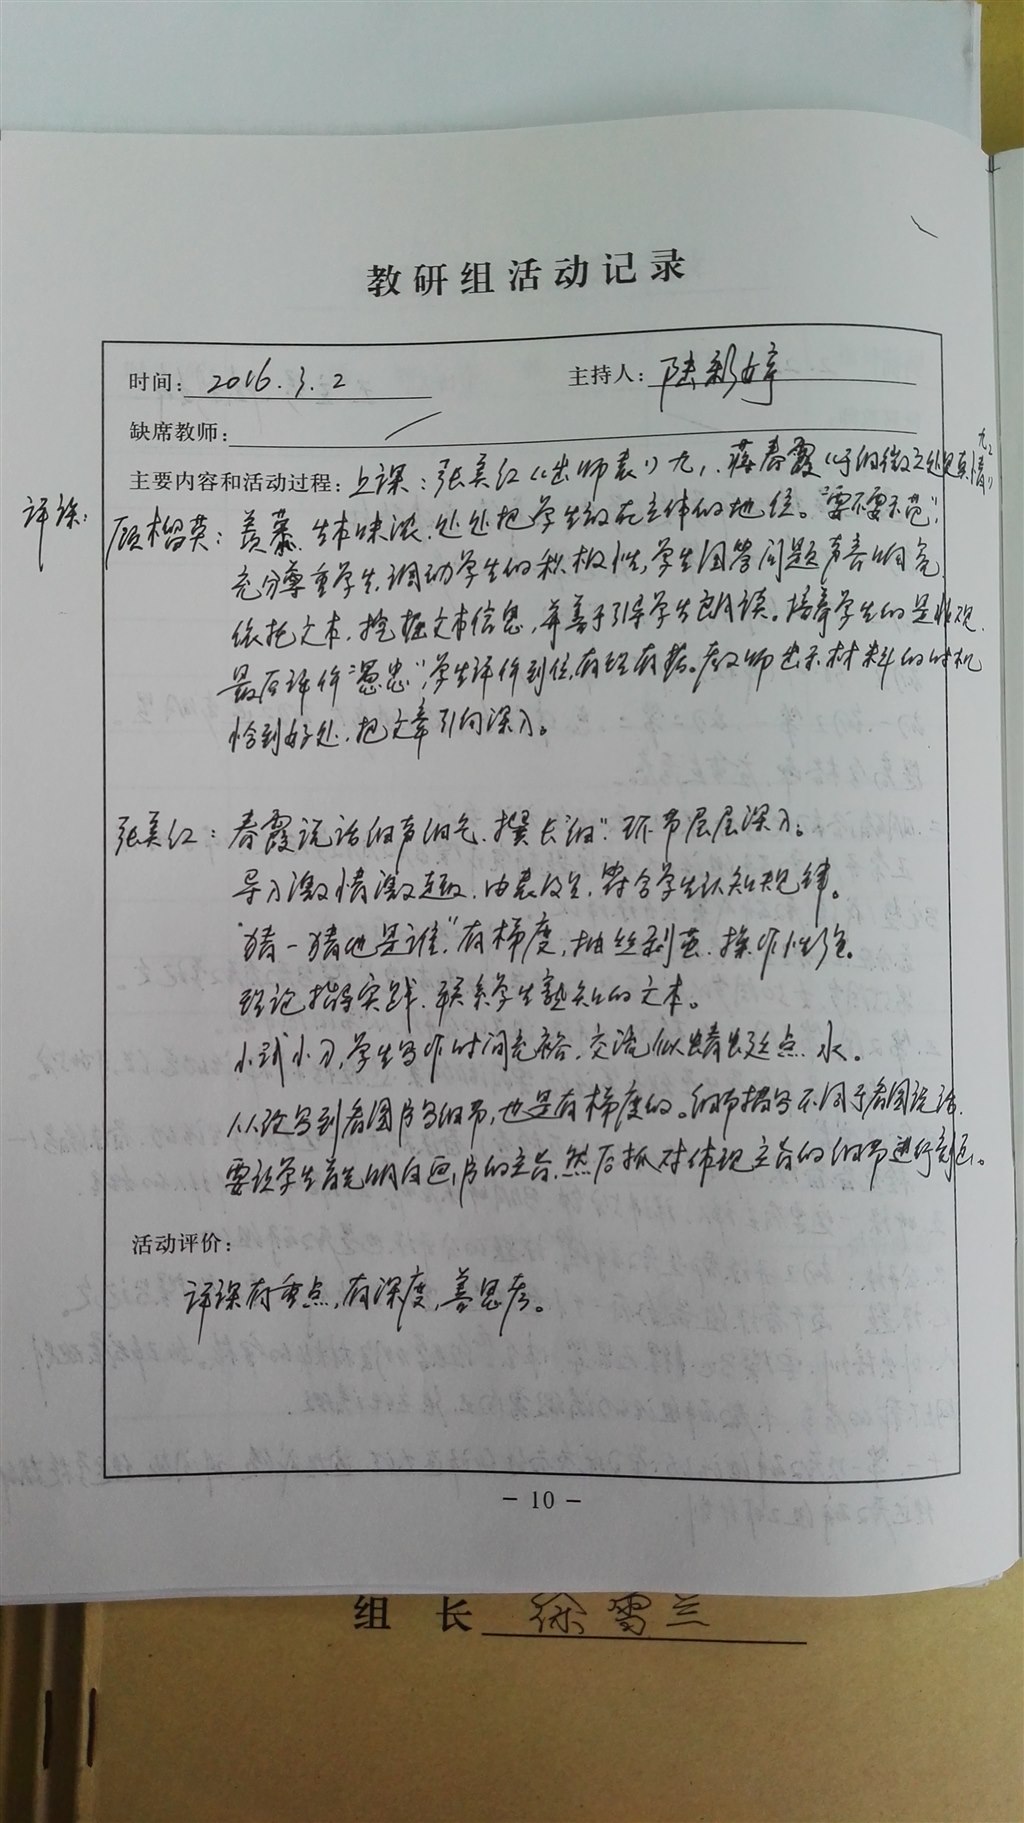 教研组活动记录
时间：2016.3.2 主持人：陆彩婷
缺席教师：
主要内容和活动过程：上课：张美红《出师表》九1、蒋春霞《于细微之处见真情》九2
评课：
顾榴英：羡慕、生本味浓、处处把学生放在主体的地位。"要不要示范"，
充分尊重学生，调动学生的积极性，学生回答问题声音响亮、
依托文本，挖掘文本信息，并善于引导学生朗读。培养学生的是非观、
最后评价"愚忠"，学生评价到位，有理有据。教师出示材料的时机
恰到好处、把文章引向深入。
张美红：春霞说话细声细气、擅长"细"、环节层层深入。
导入激情激趣、由表及里、符合学生认知规律。
"猜一猜他是谁"、有梯度，抽丝剥茧、操作性强。
理论指导实践、联系学生熟知的文本。
小试小刀，学生写作时间充裕、交流似蜻蜓点水。
从改写到看图片写细节，也是有梯度的。细节描写不同于看图说话、
要让学生首先明白画片的主旨、然后抓对体现主旨的细节进行刻画。
活动评价：
评课有重点，有深度，善思考。
－ 10 －
组 长 徐雪兰